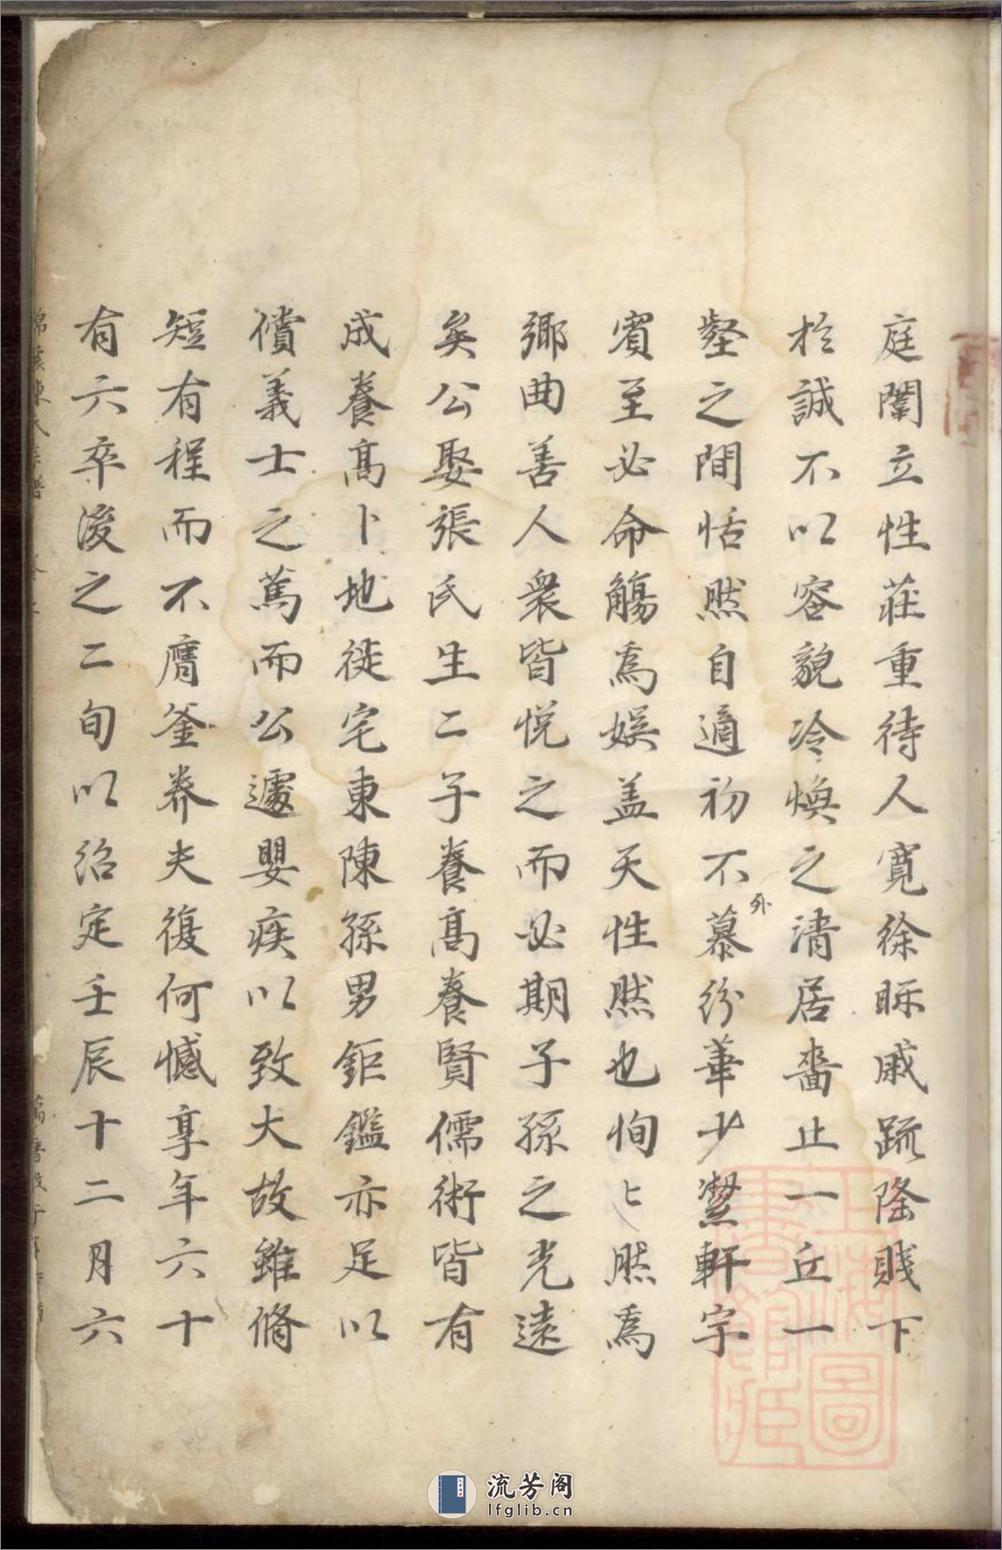 庭闈立性莊重待人寛徐眎戚疏隆賤下
扵誠不以容貌冷煥之清居嗇止一丘一
壑之間恬然自適初不慕外紛華少潔軒宇
賔至必命觴爲娛盖天性然也恂〻然爲
鄉曲善人衆皆悦之而必期子孫之光遠
矣公娶張氏生二子養髙養賢儒術皆有
成養髙卜地徙宅東陳孫男鉅鑑亦足以
償義士之篤而公遽嬰疾以致大故雖脩
短有程而不膺釜养夫復何憾享年六十
有六卒後之二旬以紹定壬辰十二月六
上海圖
書館藏
流芳阁
lfglib.cn